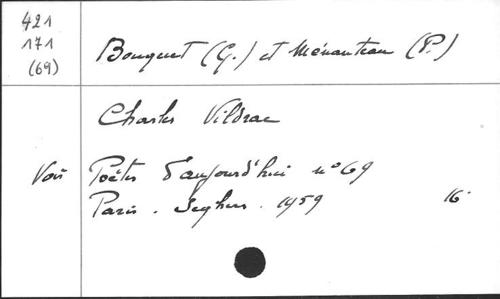 421
171
(69)
Bouquet (G.) et Ménanteau (P.)
Charles Vildrac
Voir Poètes d'aujourd'hui n° 69
Paris. Seghers. 1959 16